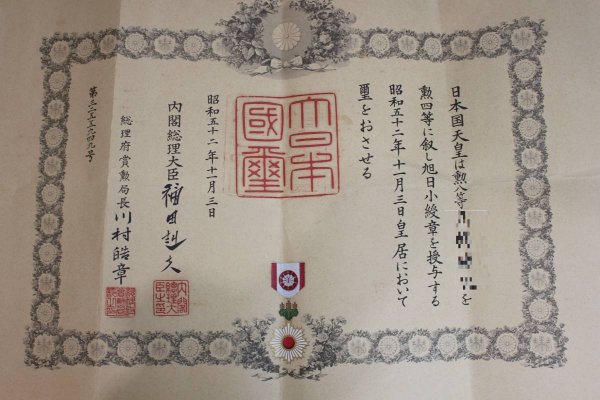 日本国天皇は勲八等
を
勲四等に叙し旭日小綬章を授与する
昭和五十二年十一月三日皇居において
璽をおさせる
大日本國璽
昭和五十二年十一月三日
内閣総理大臣 福田赳夫
内閣総理大臣之印
総理府賞勲局長 川村皓章